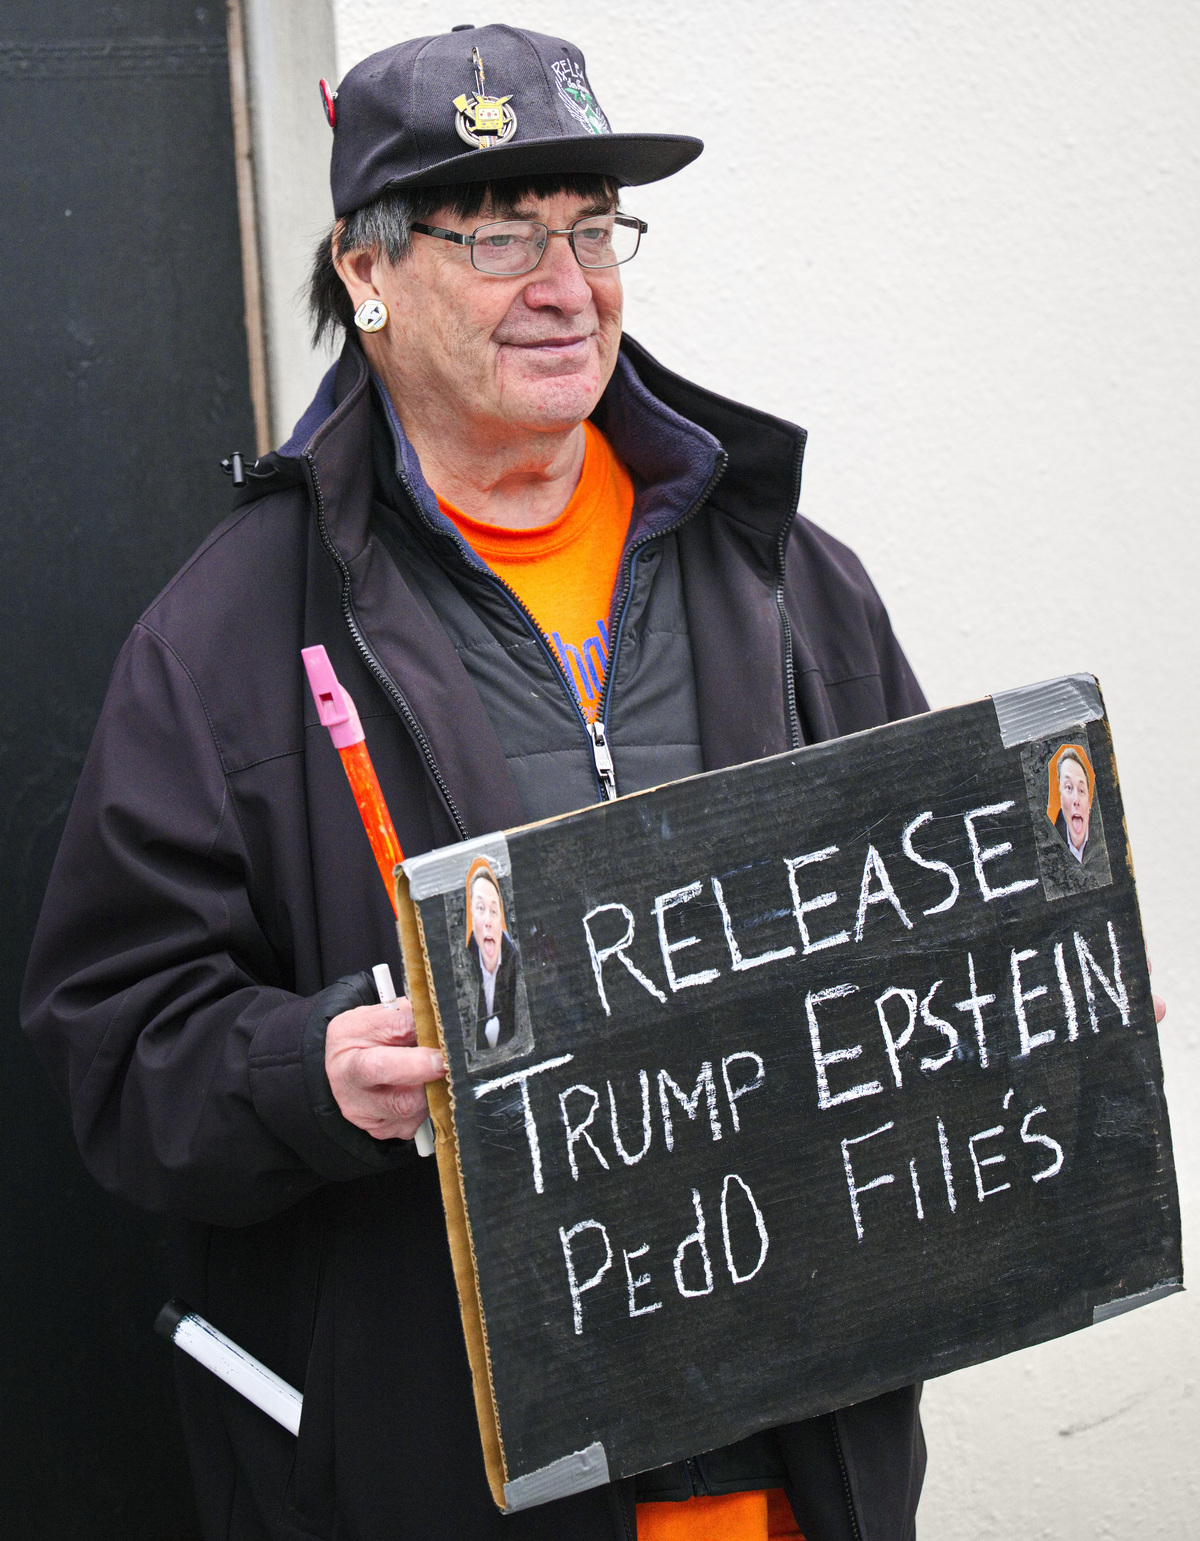 RELEASE
TRUMP EPStEIN
PEdO FilE'S